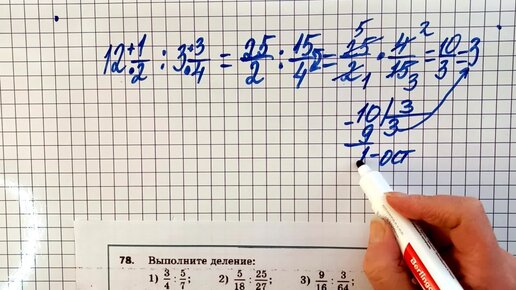 12 1/2 : 3 3/4 = 25/2 : 15/4 = 25/2 · 4/15 = 10/3 = 3
5 2
1 3
10 | 3
- 9 3
1 - ост
78. Выполните деление:
1) 3/4 : 5/7; 2) 5/18 : 25/27; 3) 9/16 : 3/64;
Berlingo